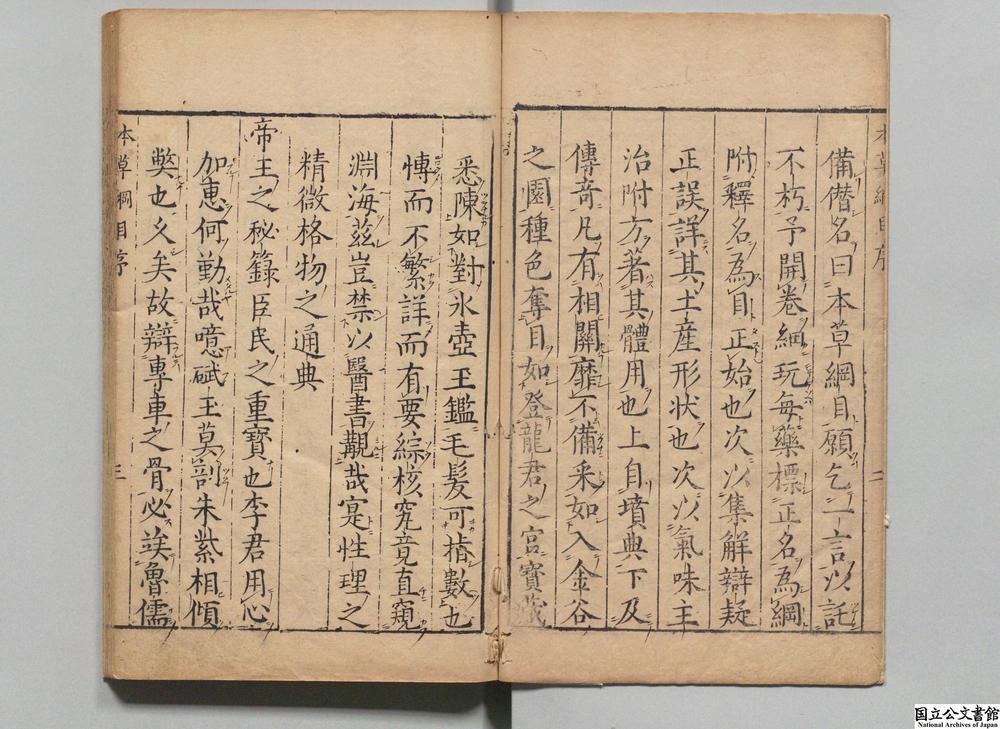 備僭名曰本草綱目願乞一言以託
不朽予開卷細玩每藥標正名為綱
附釋名為目正始也次以集解辯疑
正誤詳其土産形状也次以氣味主
治附方著其體用也上自墳典下及
傳奇凡有相關靡不備采如入金谷
之園種色奪目如登龍君之宫寶藏
悉陳如對氷壺玉鑑毛髮可指數也
愽而不繁詳而有要綜核究竟直窺
淵海兹豈禁以醫書觀哉寔性理之
精微格物之通典
帝王之秘籙臣民之重寳也李君用心
加惠何勤哉噫碔玉莫剖朱紫相傾
弊也乆矣故辯專車之骨必竢魯儒
本草綱目序
三
本草綱目序
二
国立公文書館
National Archives of Japan